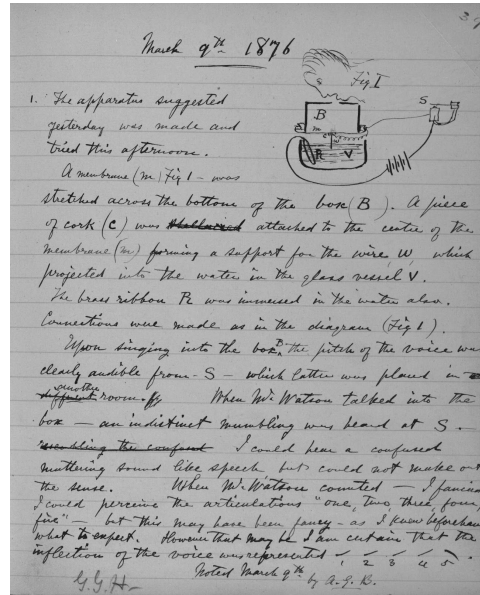 39
March 9th 1876
Fig I
1. The apparatus suggested
yesterday was made and
tried this afternoon.
A membrane (m) Fig 1 - was
stretched across the bottom of the box (B). A piece
of cork (c) was attached to the centre of the
membrane (m) forming a support for the wire W, which
projected into the water in the glass vessel V.
The brass ribbon R was immersed in the water also.
Connections were made as in the diagram (Fig 1).
Upon singing into the box B, the pitch of the voice was
clearly audible from - S - which latter was placed in
another
different room.
When Mr. Watson talked into the
box - an indistinct mumbling was heard at S.
resembling the confused I could hear a confused
muttering sound like speech but could not make out
the sense. When Mr. Watson counted - I fancied
I could perceive the articulations "one, two, three, four,
five" - but this may have been fancy - as I knew beforehand
what to expect. However that may be I am certain that the
inflection of the voice was represented
1 2 3 4 5
Noted March 9th
by A.G.B.
G.G.H-
S
B
m
c
R
V